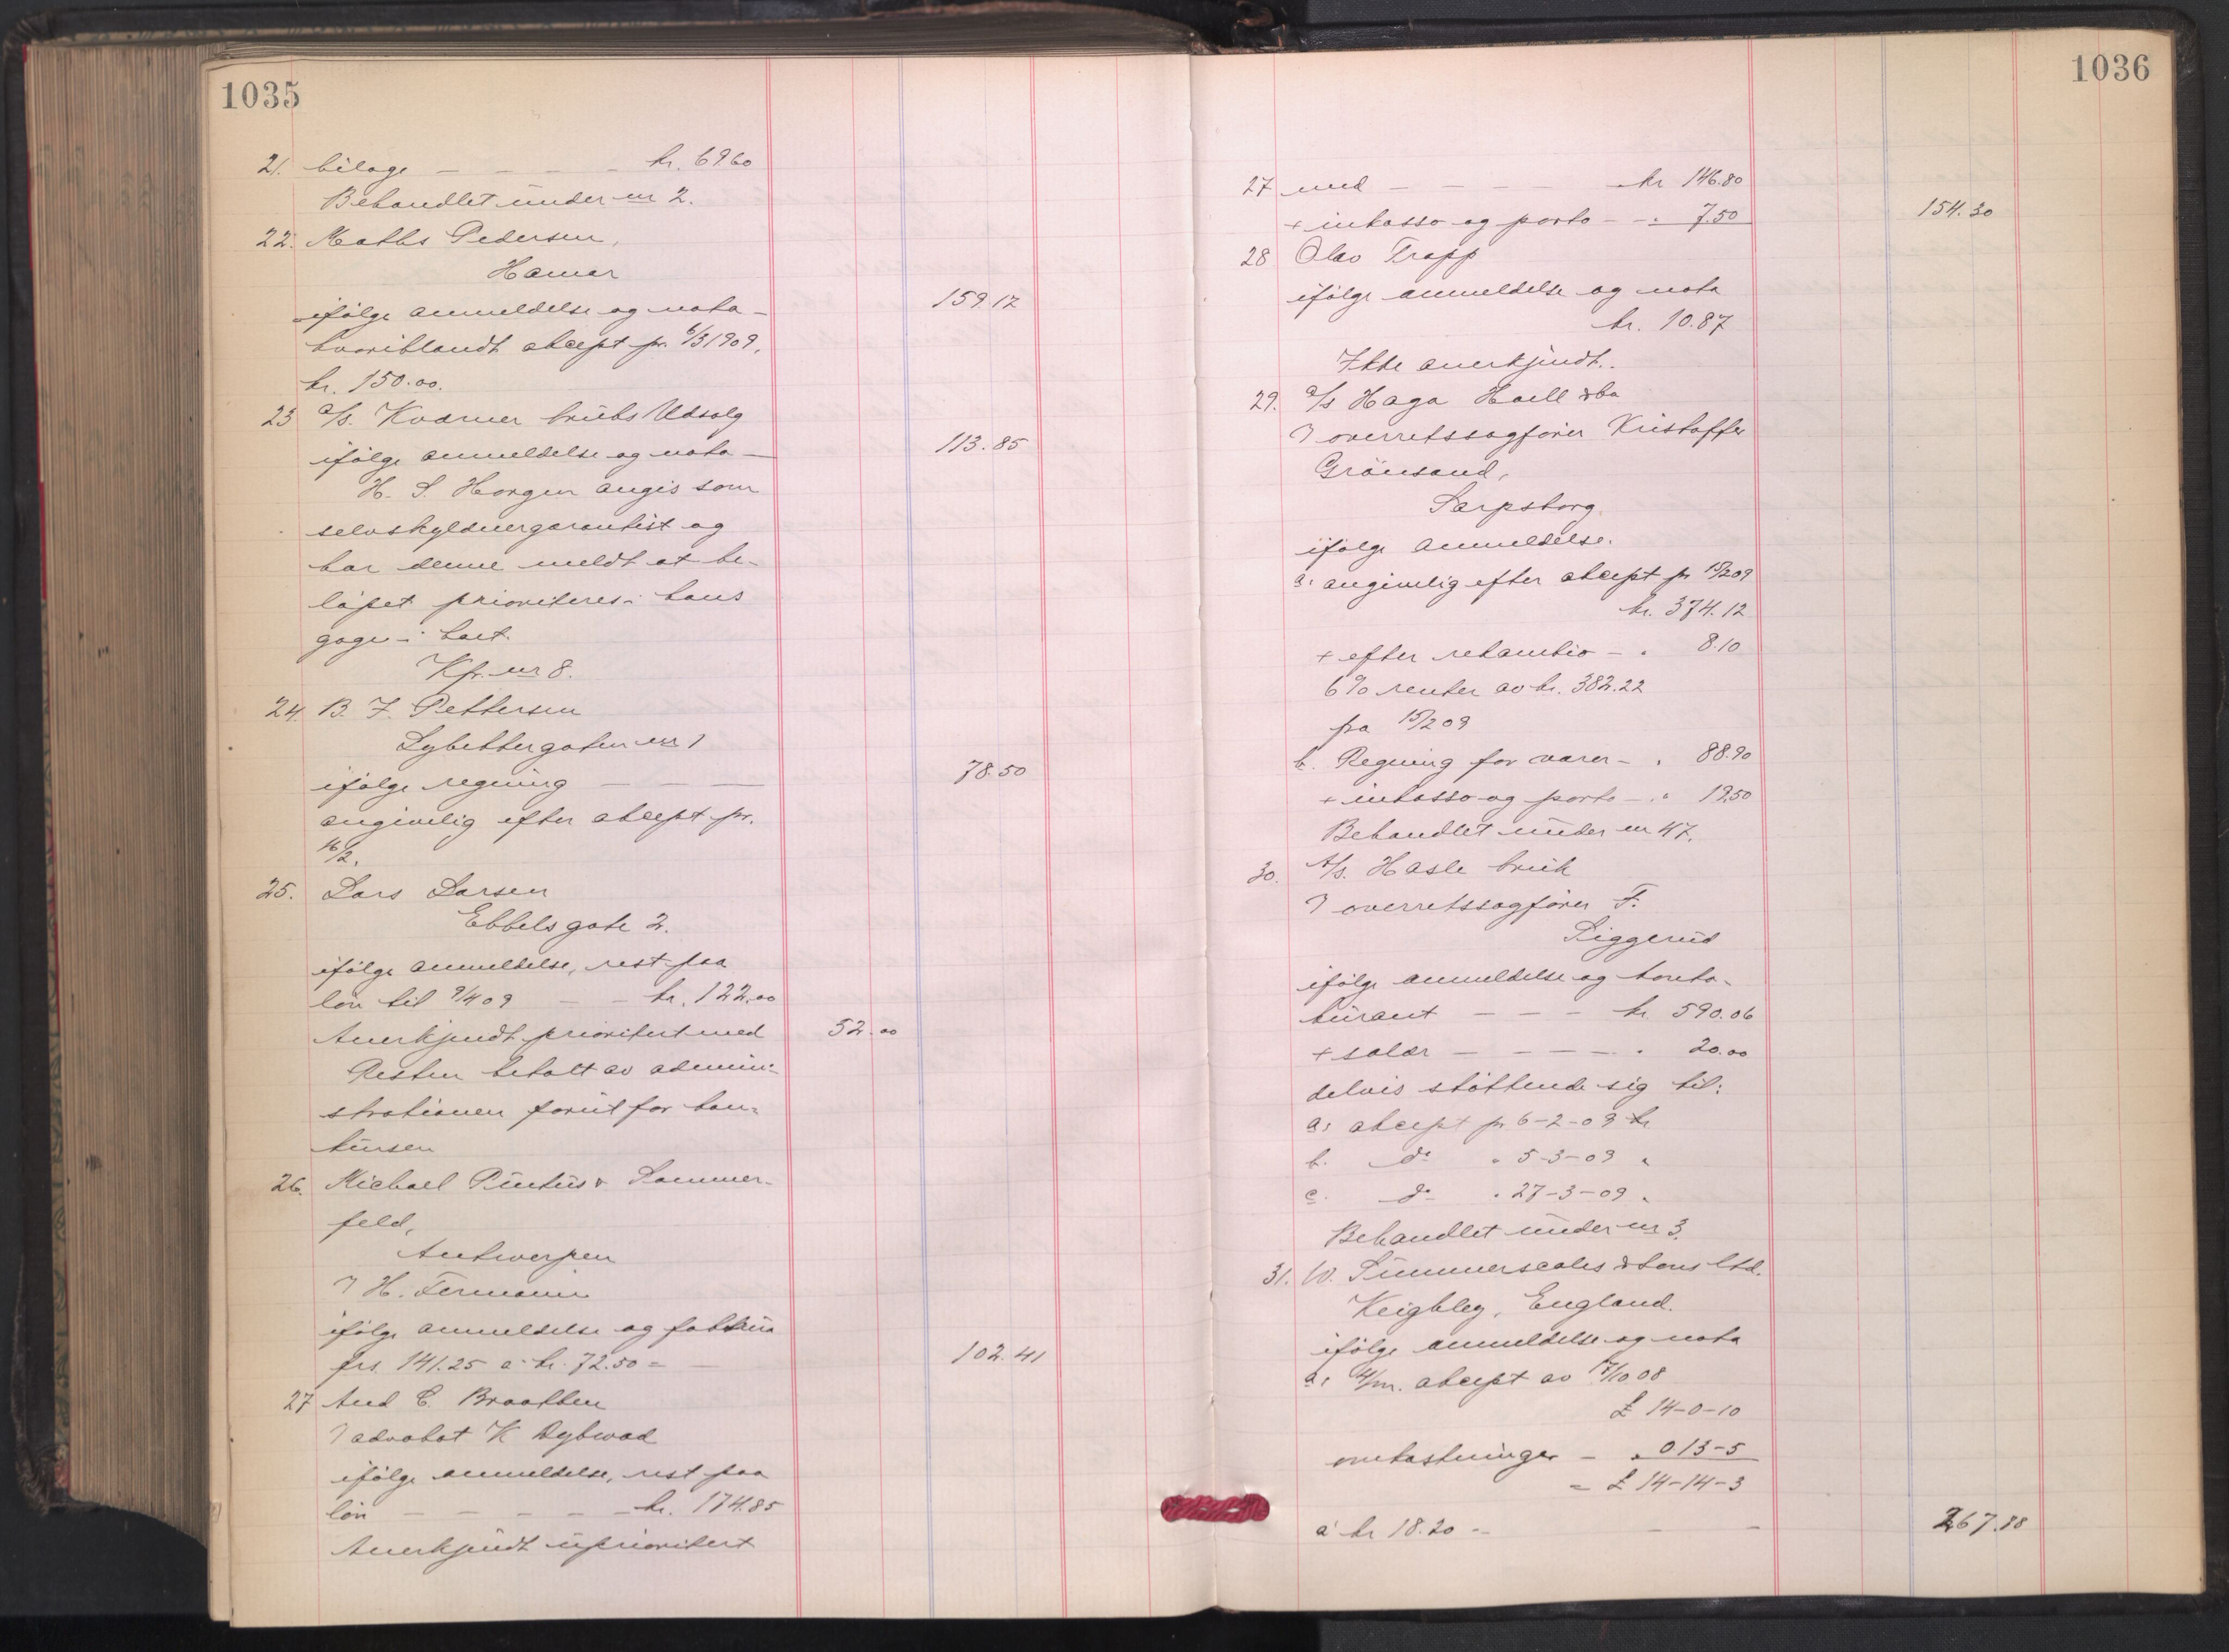 1035
21. bilage - - - - - kr. 69.60
Behandlet under nr 2.
22. Maths Pedersen,
Hamar
ifølge anmeldelse og nota - 159.12
hvoriblandt akcept pr. 6/3 1909,
kr. 150.00.
23 a/s. Kværner bruks Utsalg
ifølge anmeldelse og nota - 113.85
H. S. Horgen angis som
selvskyldnergarantist og
har denne meldt at be-
løpet prioriteres i hans
gage i hast.
Kfr. nr 8.
24. B. F. Pettersen
Lybekkergaten nr 1
ifølge regning - - - 78.50
angivelig efter akcept pr.
16/2.
25. Lars Larsen
Ebbelsgate 2.
ifølge anmeldelse, rest paa
løn til 9/4 09 - - kr. 122.00
Anerkjendt prioritert med 52.00
Resten betalt av admini-
strationen forut for kon-
kursen
26. Michael Pintus & Sommer-
feld,
Antwerpen
) H. Fermann
ifølge anmeldelse og faktura
frs. 141.25 a kr. 72.50 = - 102.41
27 And C. Braathen
) advokat K Dybwad
ifølge anmeldelse, rest paa
løn - - - - - kr. 174.85
Anerkjendt uprioritert
1036
27 med - - - - - kr 146.80
+ inkasso og porto - - " 7.50 154.30
28 Olav Trapp
ifølge anmeldelse og nota
kr. 10.87
Ikke anerkjendt.
29. a/s Haga Hoell & Co
) overretssagfører Kristoffer
Grönsand,
Sarpsborg.
ifølge anmeldelse.
a: angivelig efter akcept pr 15/2 09
kr. 374.12
+ efter rekambio - " 8.10
6% renter av kr. 382.22
fra 15/2 09
b. Regning for varer - " 88.90
+ inkasso og porto - " 19.50
Behandlet under nr 47.
30. A/s. Hasle bruk
) overretssagfører F.
Siggerud
ifølge anmeldelse og konto-
kurant - - - kr. 590.06
+ salær - - - - " 20.00
delvis støttende sig til:
a: akcept pr 6-2-09 kr
b. do " 5-3-09 "
c. do " 27-3-09 "
Behandlet under nr 3.
31. W. Summerscales & Sons Ltd.
Keighley, England.
ifølge anmeldelse og nota
a: 4/m. akcept av 17/10 08
£ 14-0-10
omkostninger - " 0 13-5
= £ 14-14-3
á kr 18.20 - - - 267.88